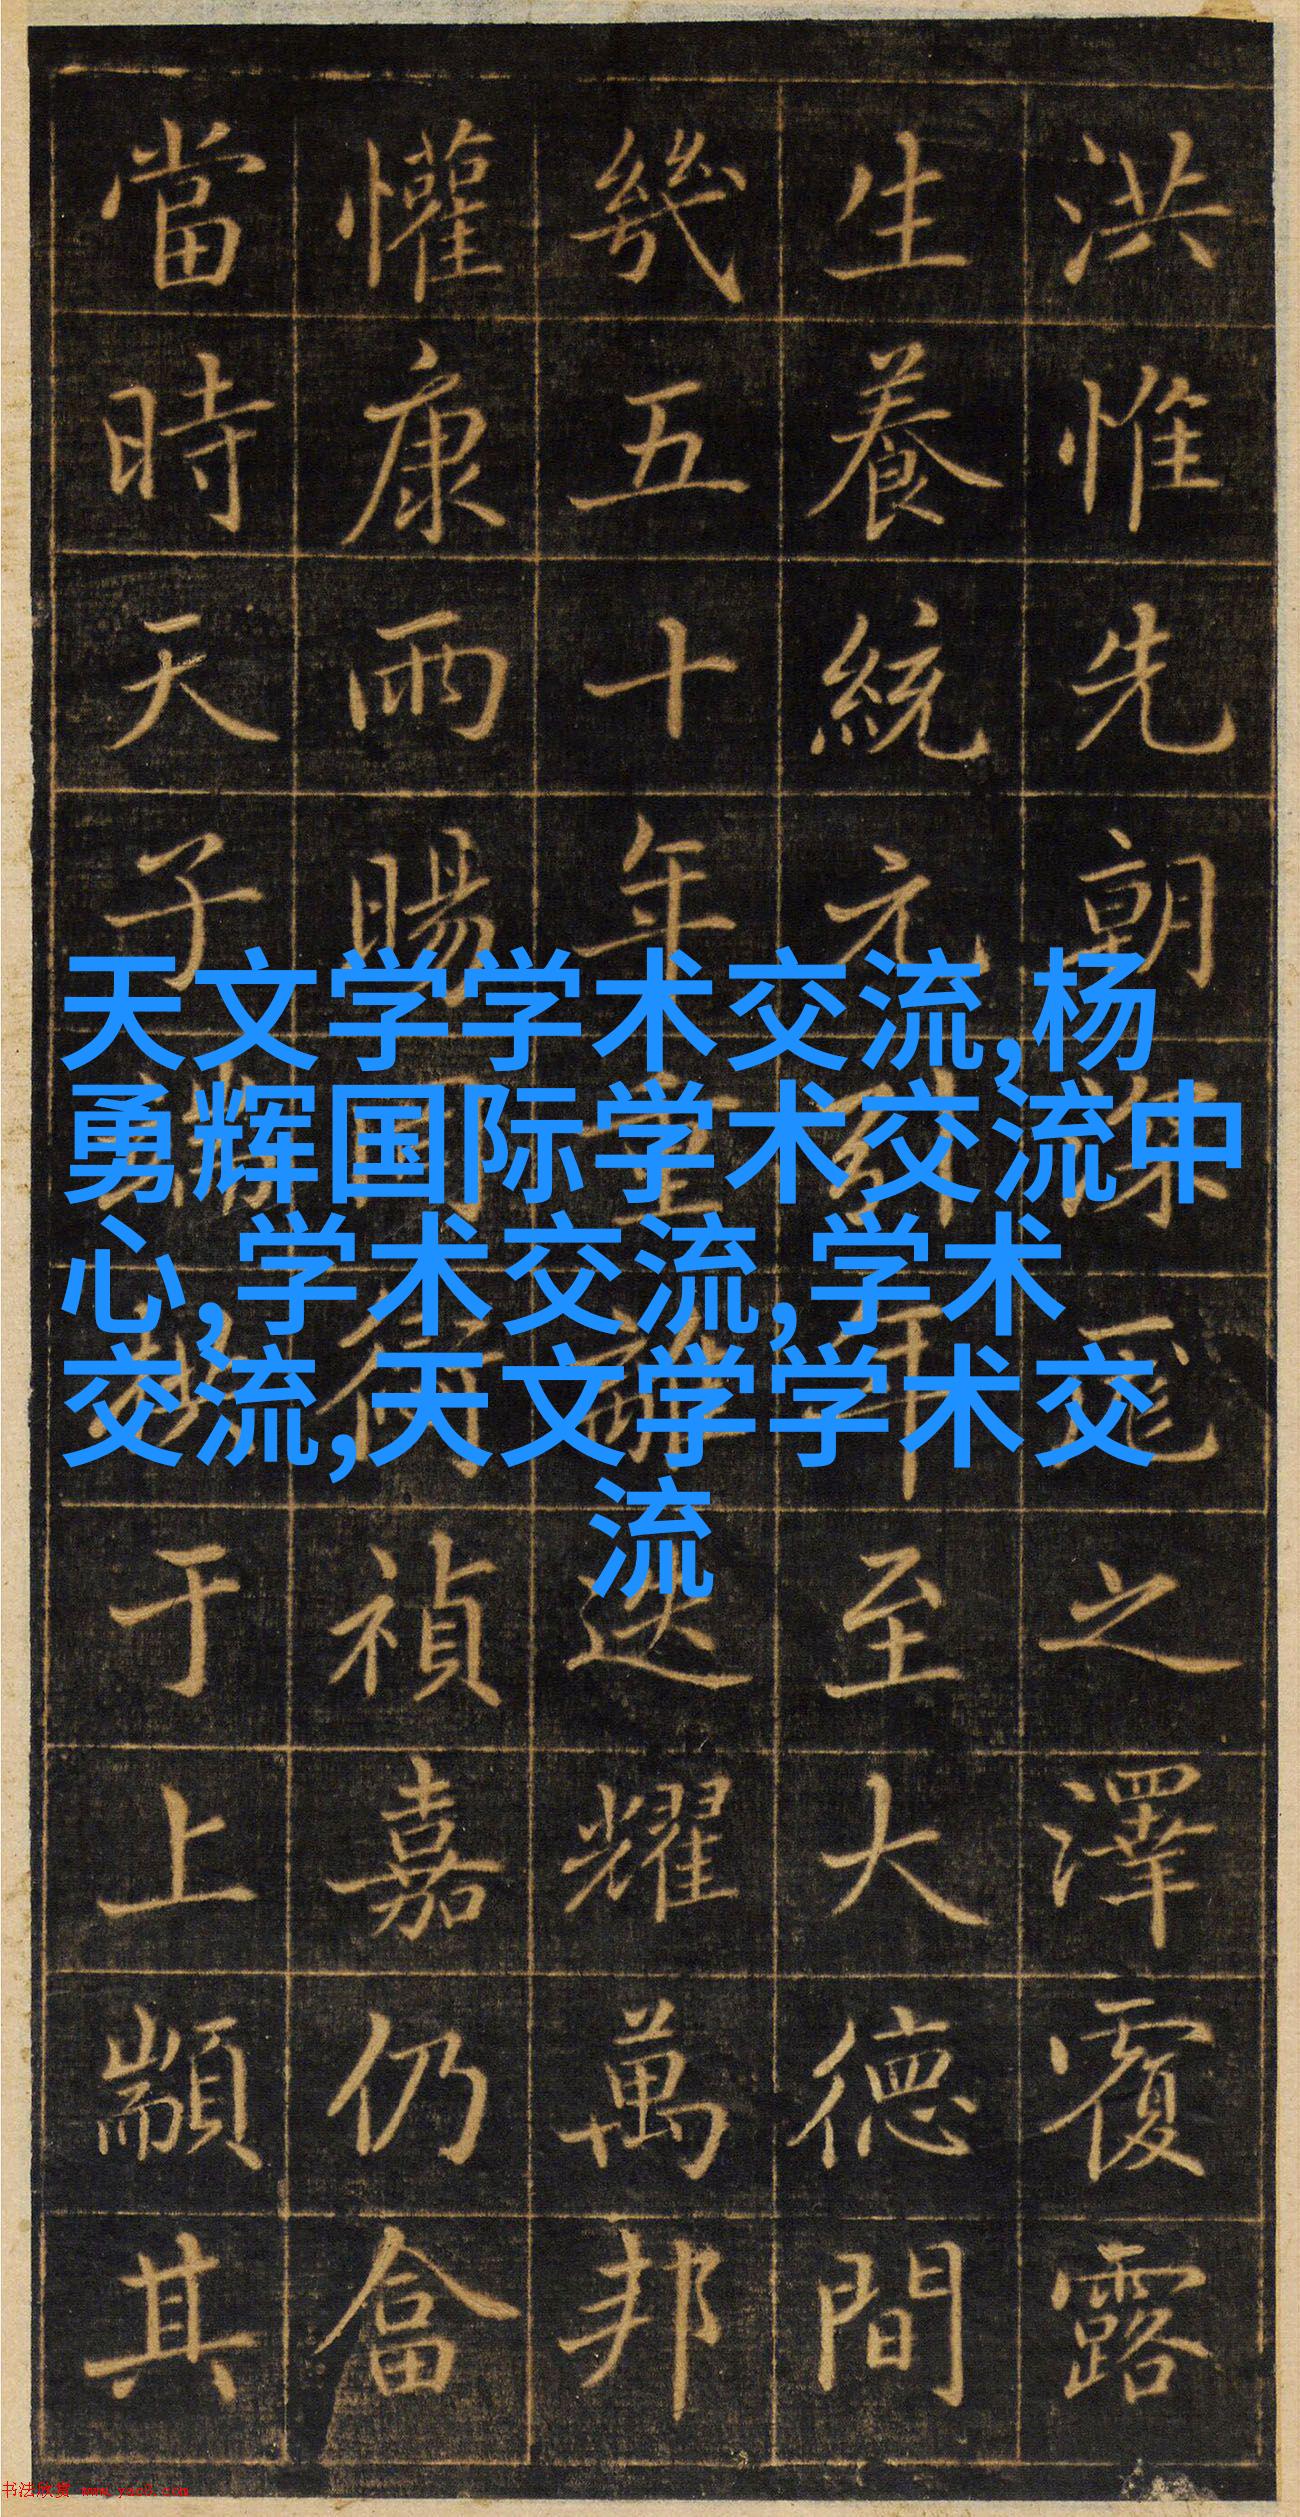 洪惟先朝之澤覆露
生養統元年至大德間
幾五十年重離迭耀萬邦
懽康雨暘禎嘉仍畬
當時天子于上顓其
天文学学术交流,杨
勇辉国际学术交流中
心,学术交流,学术
交流,天文学学术交
流
书法欣赏 www.yac8.com